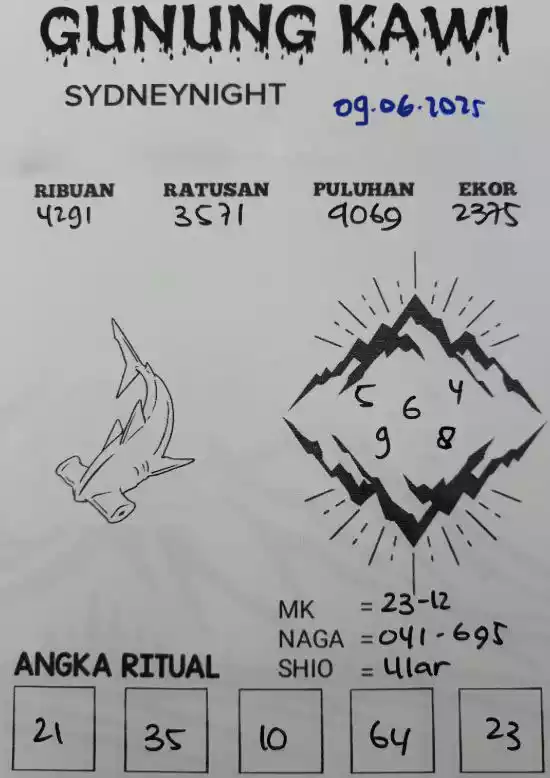 GUNUNG KAWI
SYDNEYNIGHT 09.06.2025
RIBUAN RATUSAN PULUHAN EKOR
4291 3571 9069 2375
5 6 4
9 8
MK = 23-12
NAGA = 041-695
SHIO = Ular
ANGKA RITUAL
21 35 10 64 23